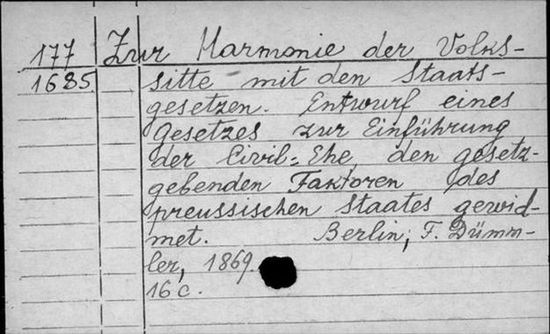 177 Zur Harmonie der Volks-
1685 sitte mit den Staats-
gesetzen. Entwurf eines
Gesetzes zur Einführung
der Civil-Ehe, den gesetz-
gebenden Faktoren des
preussischen Staates gewid-
met. Berlin, F. Dümm-
ler, 1869.
16 c.